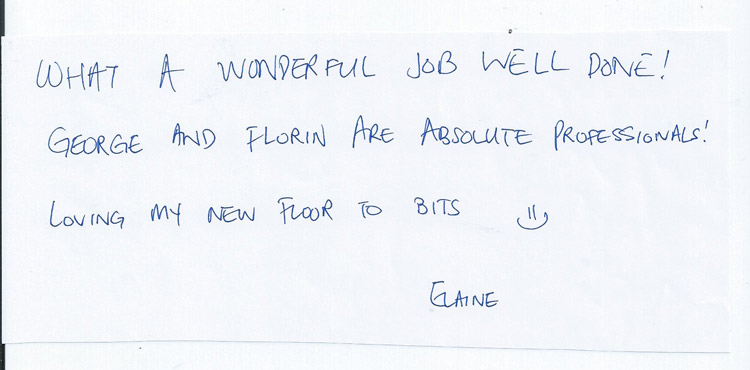 WHAT A WONDERFUL JOB WELL DONE!
GEORGE AND FLORIN ARE ABSOLUTE PROFESSIONALS!
LOVING MY NEW FLOOR TO BITS =)
ELAINE